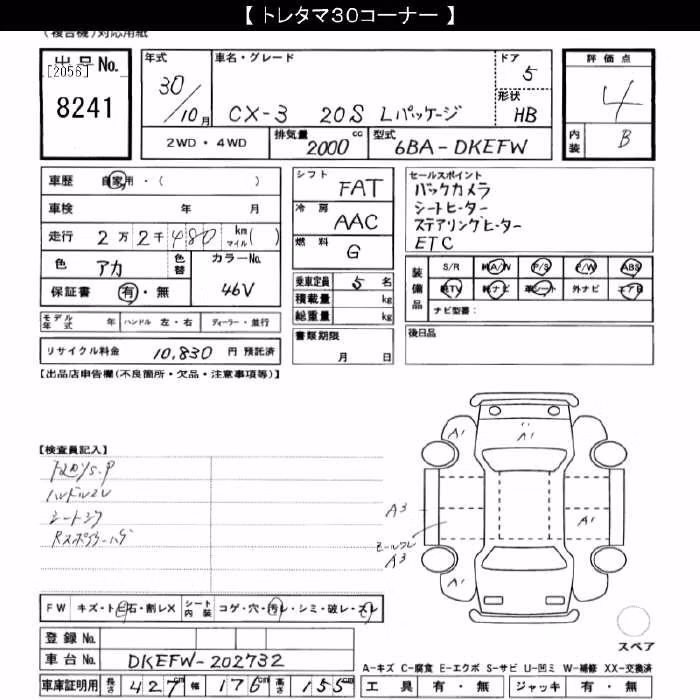 【 トレタマ30コーナー 】
(複合機)対応用紙
出品No.
[2056]
8241
年式
30/10月
車名・グレード
CX-3 20S Lパッケージ
ドア
5
形状
HB
2WD・4WD
排気量
2000 cc
型式
6BA-DKEFW
評価点
4
内装
B
車歴 自家用・( )
車検 年 月
走行 2万2千480 km マイル( )
色 アカ
色替
カラーNo.
46V
保証書 有・無
モデル年式 年 ハンドル 左・右 ディーラー・並行
リサイクル料金 10,830 円 預託済
シフト
FAT
冷房
AAC
燃料
G
乗車定員 5 名
積載量 kg
総重量 kg
書類期限
月 日
セールスポイント
バックカメラ
シートヒーター
ステアリングヒーター
ETC
装備品
S/R 純A/W P/S P/W ABS
純TV 純ナビ 革シート 外ナビ エアB
ナビ型番:
後日品
【出品店申告欄(不良箇所・欠品・注意事項等)】
【検査員記入】
シートシワ
A1
A1
A1
A3
A1
モールワレ
A3
A1
FW キズ・トビ石・割レX シート内装 コゲ・穴・汚レ・シミ・破レ・スレ
登録No.
車台No. DKEFW-202732
車庫証明用 長さ 427cm 幅 176cm 高さ 155cm
スペア
A-キズ C-腐食 E-エクボ S-サビ U-凹ミ W-補修 XX-交換済
工具 有・無 ジャッキ 有・無